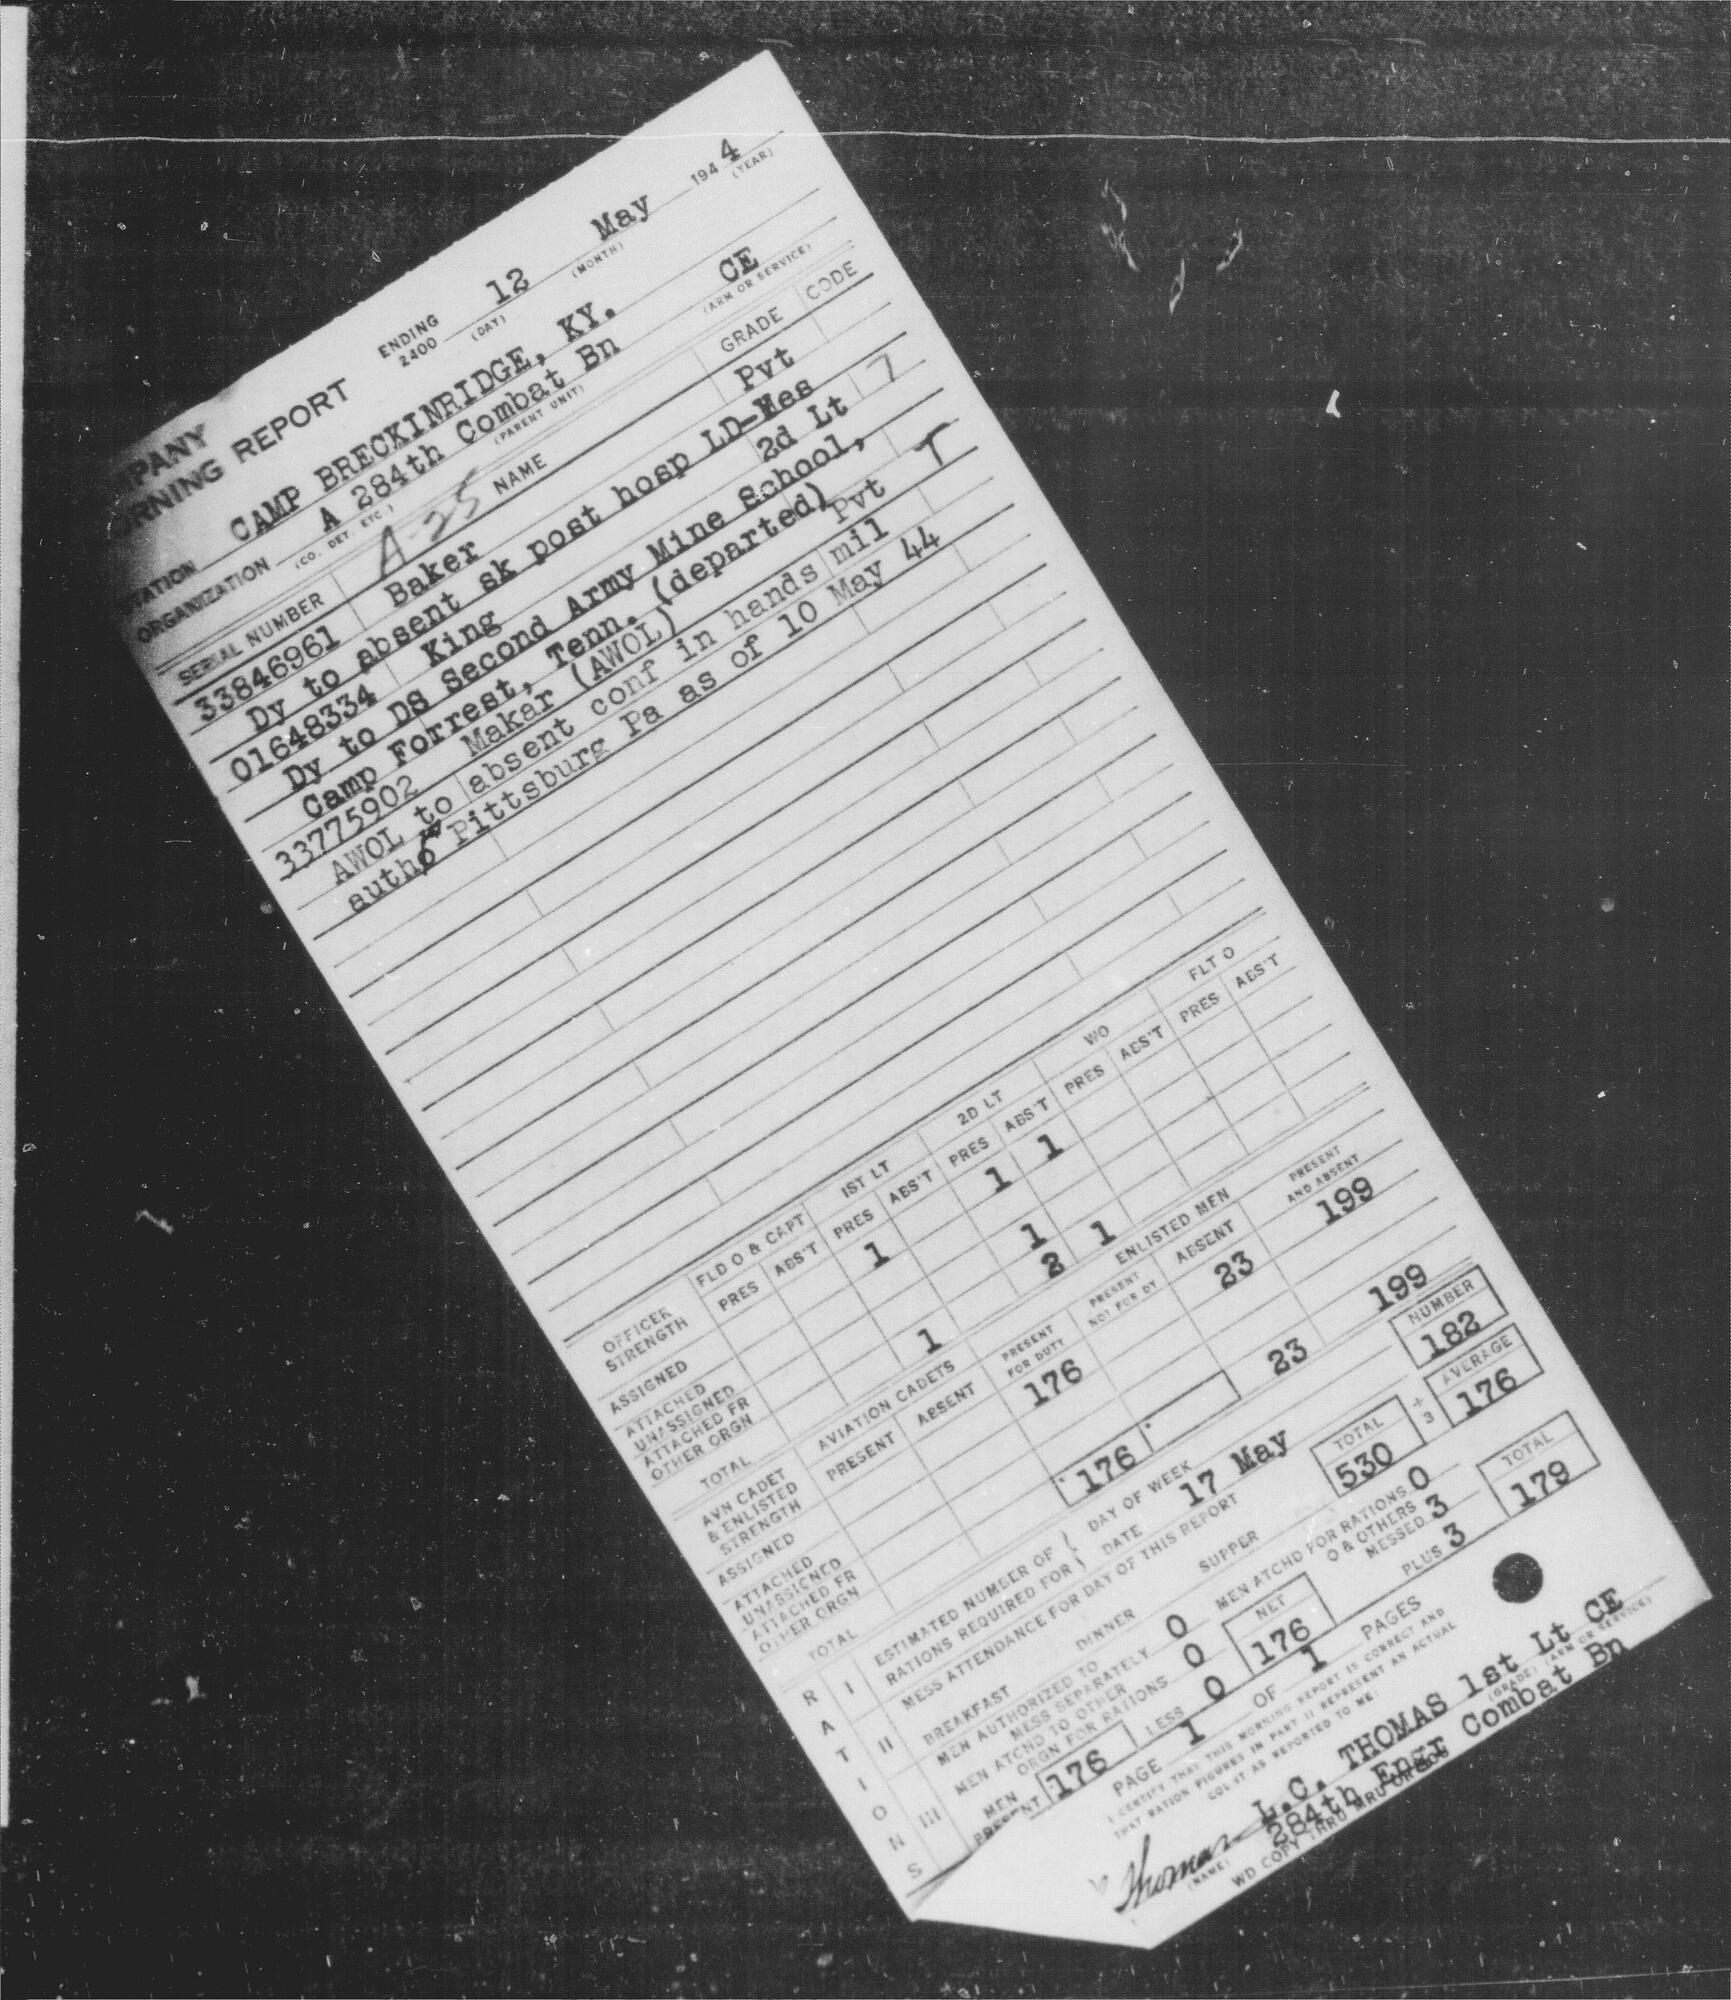 MPANY
ORNING REPORT ENDING 2400 12 (DAY) May (MONTH) 194 4 (YEAR)
STATION CAMP BRECKINRIDGE, KY.
ORGANIZATION A 284th Combat Bn CE
(CO. DET. ETC.) (PARENT UNIT) (ARM OR SERVICE)
A-25
SERIAL NUMBER NAME GRADE CODE
33846961 Baker Pvt
Dy to absent sk post hosp LD-Yes 7
01648334 King 2d Lt
Dy to DS Second Army Mine School,
Camp Forrest, Tenn. (departed) T
33775902 Makar (AWOL) Pvt
AWOL to absent conf in hands mil
auth Pittsburg Pa as of 10 May 44
OFFICER STRENGTH FLD O & CAPT 1ST LT 2D LT WO FLT O
PRES ABS'T PRES ABS'T PRES ABS'T PRES ABS'T PRES ABS'T
ASSIGNED 1 1 1
ATTACHED UNASSIGNED 1
ATTACHED FR OTHER ORGN
TOTAL 1 2 1
AVN CADET & ENLISTED STRENGTH AVIATION CADETS ENLISTED MEN
PRESENT ABSENT PRESENT FOR DUTY PRESENT NOT FOR DY ABSENT PRESENT AND ABSENT
ASSIGNED 176 23 199
ATTACHED UNASSIGNED
ATTACHED FR OTHER ORGN
TOTAL 176 23 199
RATIONS
I ESTIMATED NUMBER OF RATIONS REQUIRED FOR DAY OF WEEK NUMBER
DATE 17 May 182
II MESS ATTENDANCE FOR DAY OF THIS REPORT
BREAKFAST DINNER SUPPER TOTAL 530 ÷ 3 AVERAGE 176
III MEN AUTHORIZED TO MESS SEPARATELY 0 MEN ATCHD FOR RATIONS 0
MEN ATCHD TO OTHER ORGN FOR RATIONS 0 O & OTHERS MESSED 3
MEN PRESENT 176 LESS 0 NET 176 PLUS 3 TOTAL 179
PAGE 1 OF 1 PAGES
I CERTIFY THAT THIS MORNING REPORT IS CORRECT AND
THAT RATION FIGURES IN PART II REPRESENT AN ACTUAL
COUNT AS REPORTED TO ME:
Thomas L.C. THOMAS 1st Lt CE
(NAME) (GRADE) (ARM OR SERVICE)
284th Engr Combat Bn
WD COPY THRU MRU OR